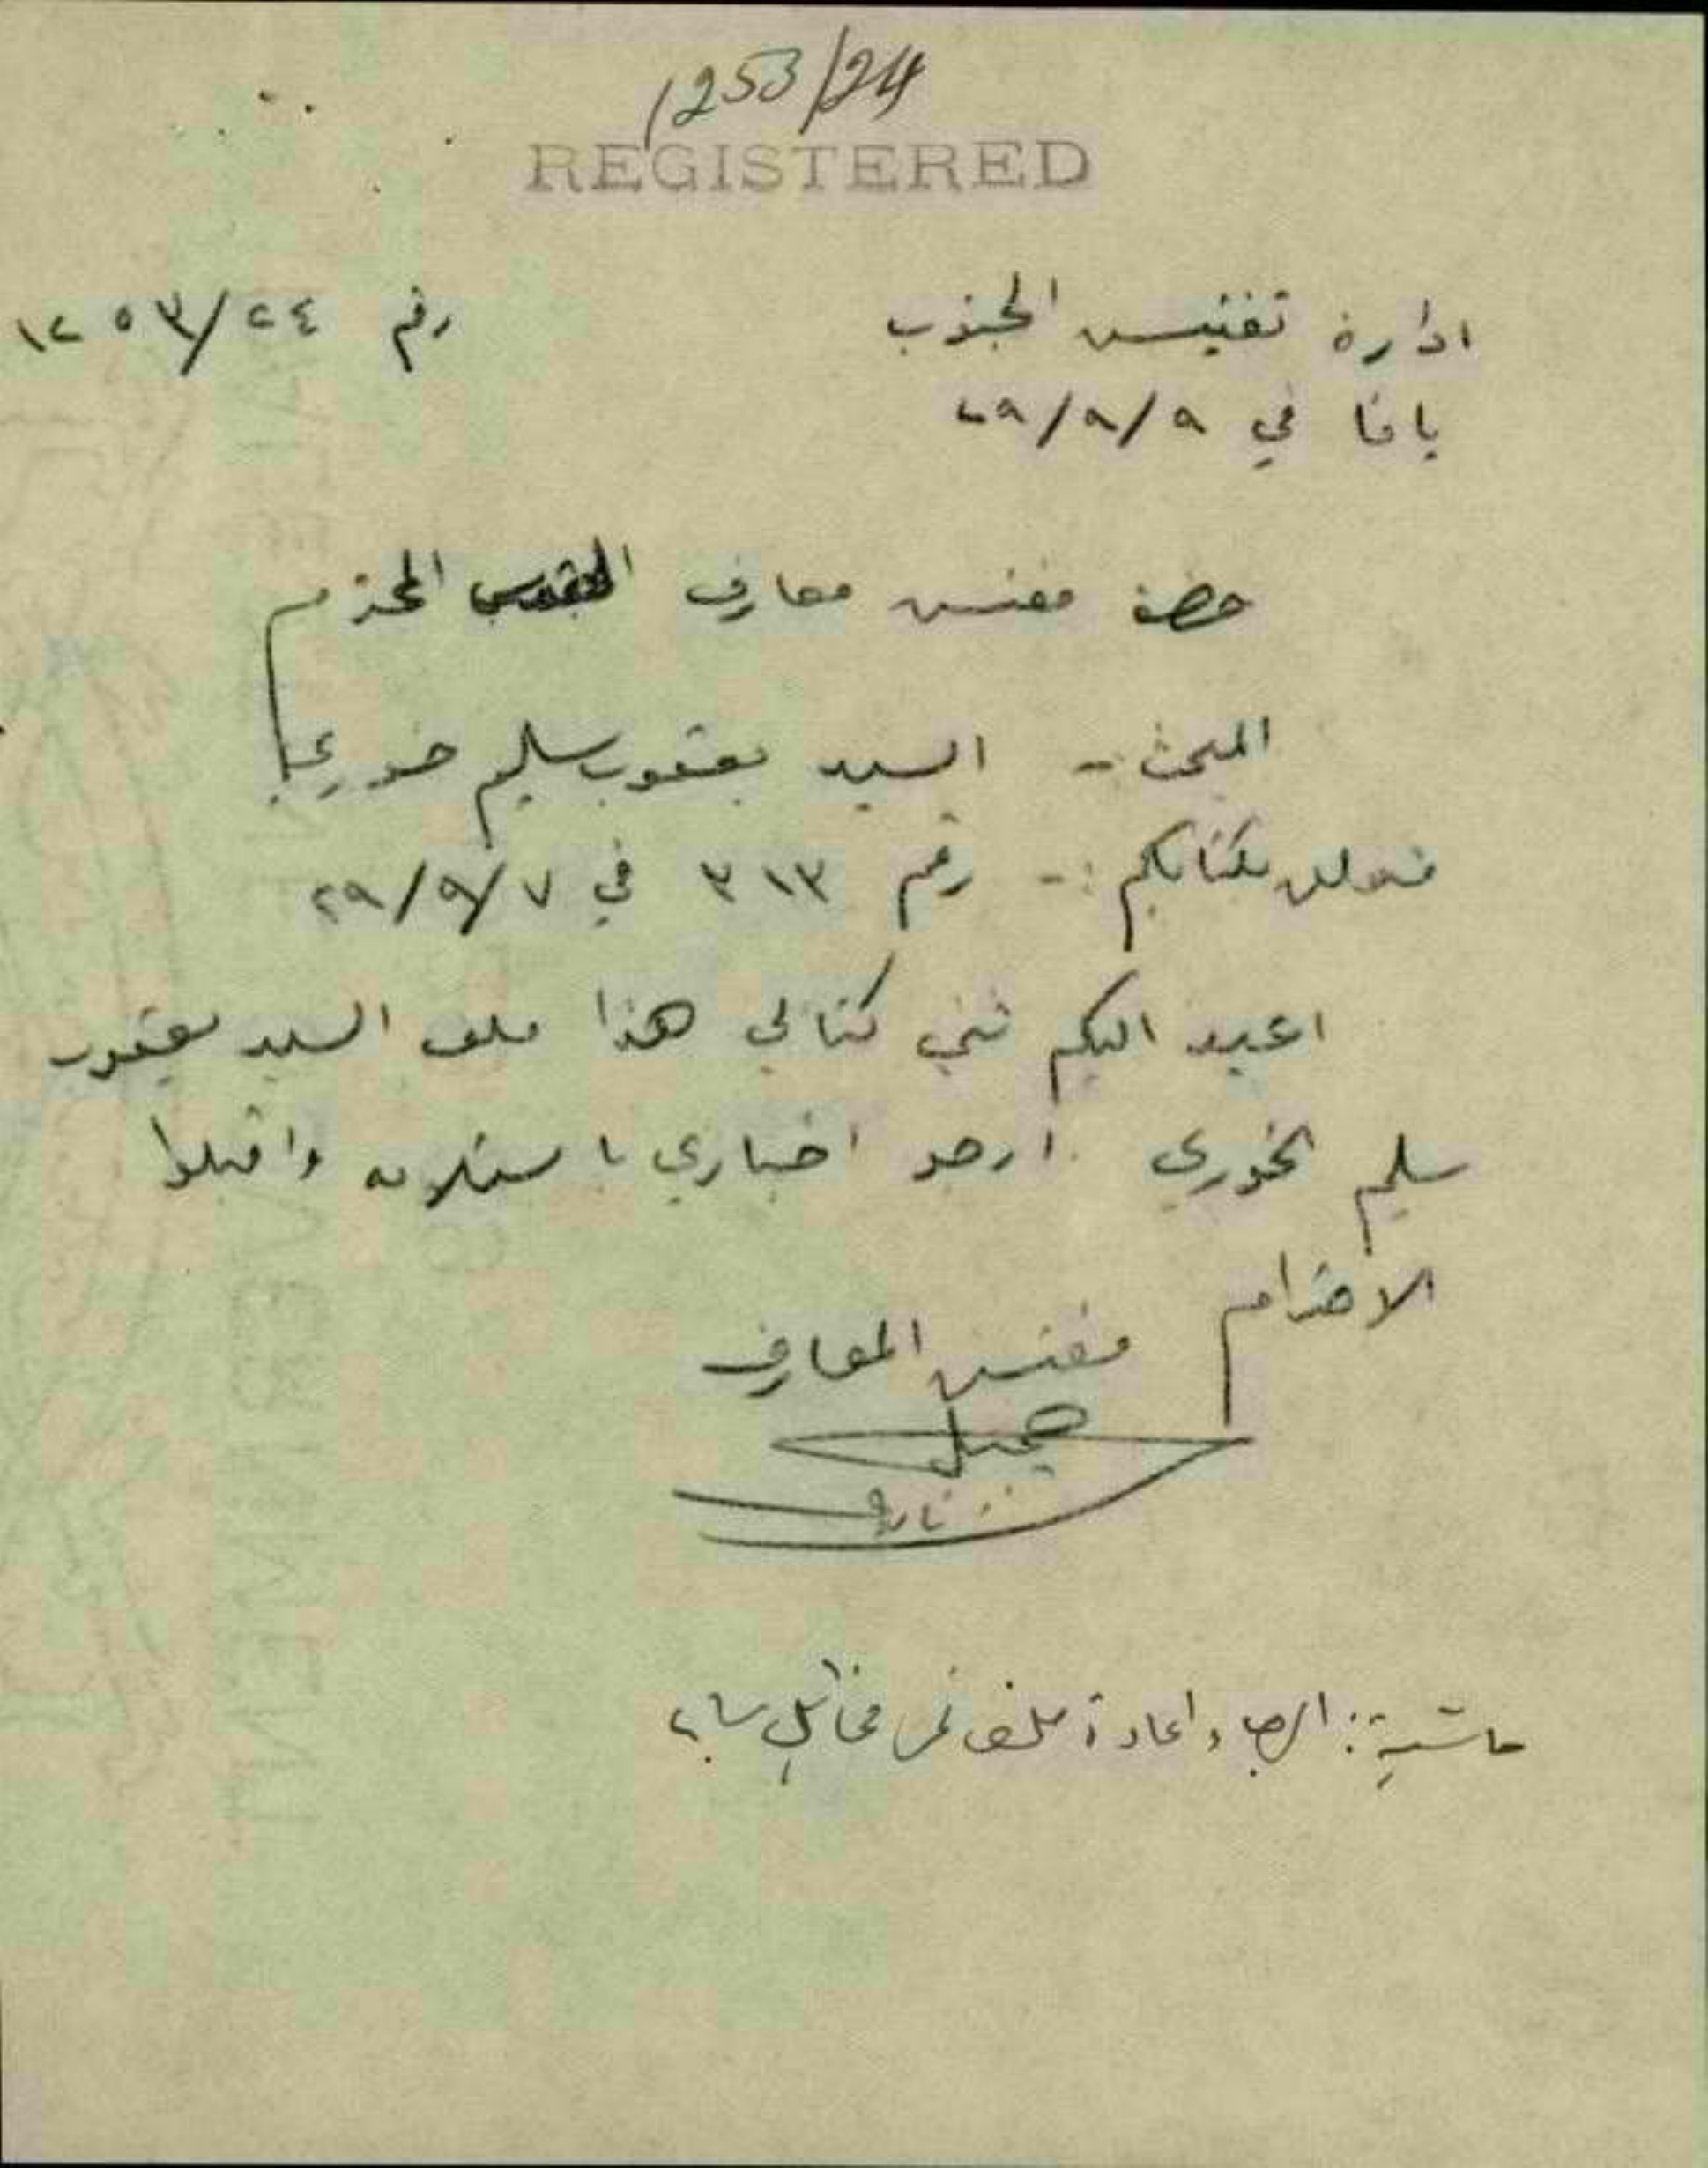 1253/24
REGISTERED
ادارة تفتيش الجنوب رقم ١٢٥٣/٢٤
يافا في ٢٩/٩/٩
حضرة مفتش معارف القدس المحترم
المبحث - السيد يعقوب سليم خوري
بكتابكم :- رقم ٣١٣ في ٢٩/٩/٧
اعيد اليكم كتابي هذا ملف السيد يعقوب
سليم الخوري ارجو اخباري باستلامه واقبلوا
الاحترام
مفتش المعارف
حاشية : الرجاء اعادة ملف نمر